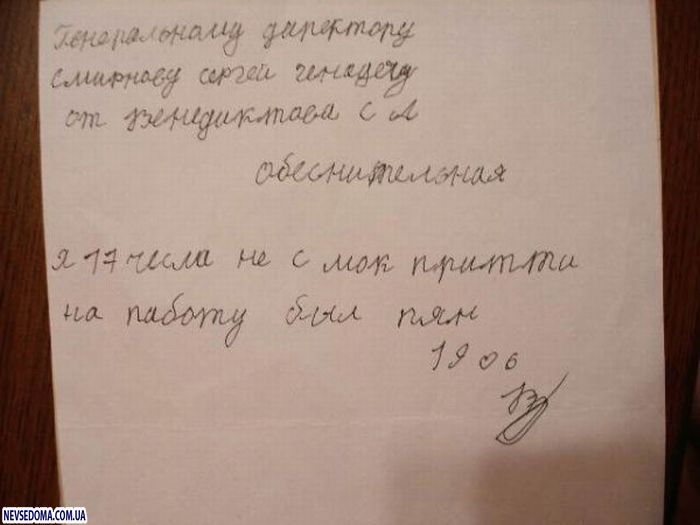 Генеральному директору
смирнову сергей генадечу
от Венедиктова С Л
обеснительная
Я 17 числа не с мок притти
на паботу был пян
19 06
NEVSEDOMA.COM.UA